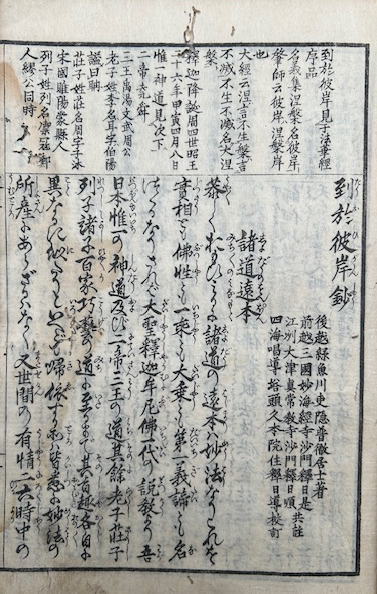 到於彼岸鈔
後越絲魚川東隠普徹居士著
前越三國妙海經寺沙門釋日是
江州大津真常教寺沙門釋日順 共註
四海唱導塔頭久本院住釋日導校訂
諸道遠本
恭しくおもひミるに諸道の遠本ハ妙法なりこれを
實相とも佛性とも一乘とも大乗とも第一義諦とも名
法るなりさ連バ大聖釋迦牟尼佛一代の説教より吾
日本惟一の神道及び二帝三王の道其餘老子荘子
列子諸子百家技藝の道に至るまで其旨趣各自に
異なるに似たりといへども帰依する所ハ皆悉く妙法の
所産にあらざるハなし又世間の有情十二六時中の
到於彼岸見于法華經
序品
名義集涅槃名彼岸
肇師云彼岸涅槃岸
也
大經云涅言不生槃言
不滅不生不滅名大涅
槃
釋迦降誕周四世昭王
二十六年甲寅四月八日
惟一神道見次下
二帝堯舜
三王禹湯文武周公
老子姓李名耳字伯陽
諡曰聃
荘子姓荘名周字子休
宋國睢陽蒙縣人
列子姓列名禦冦鄭
人繆公同時